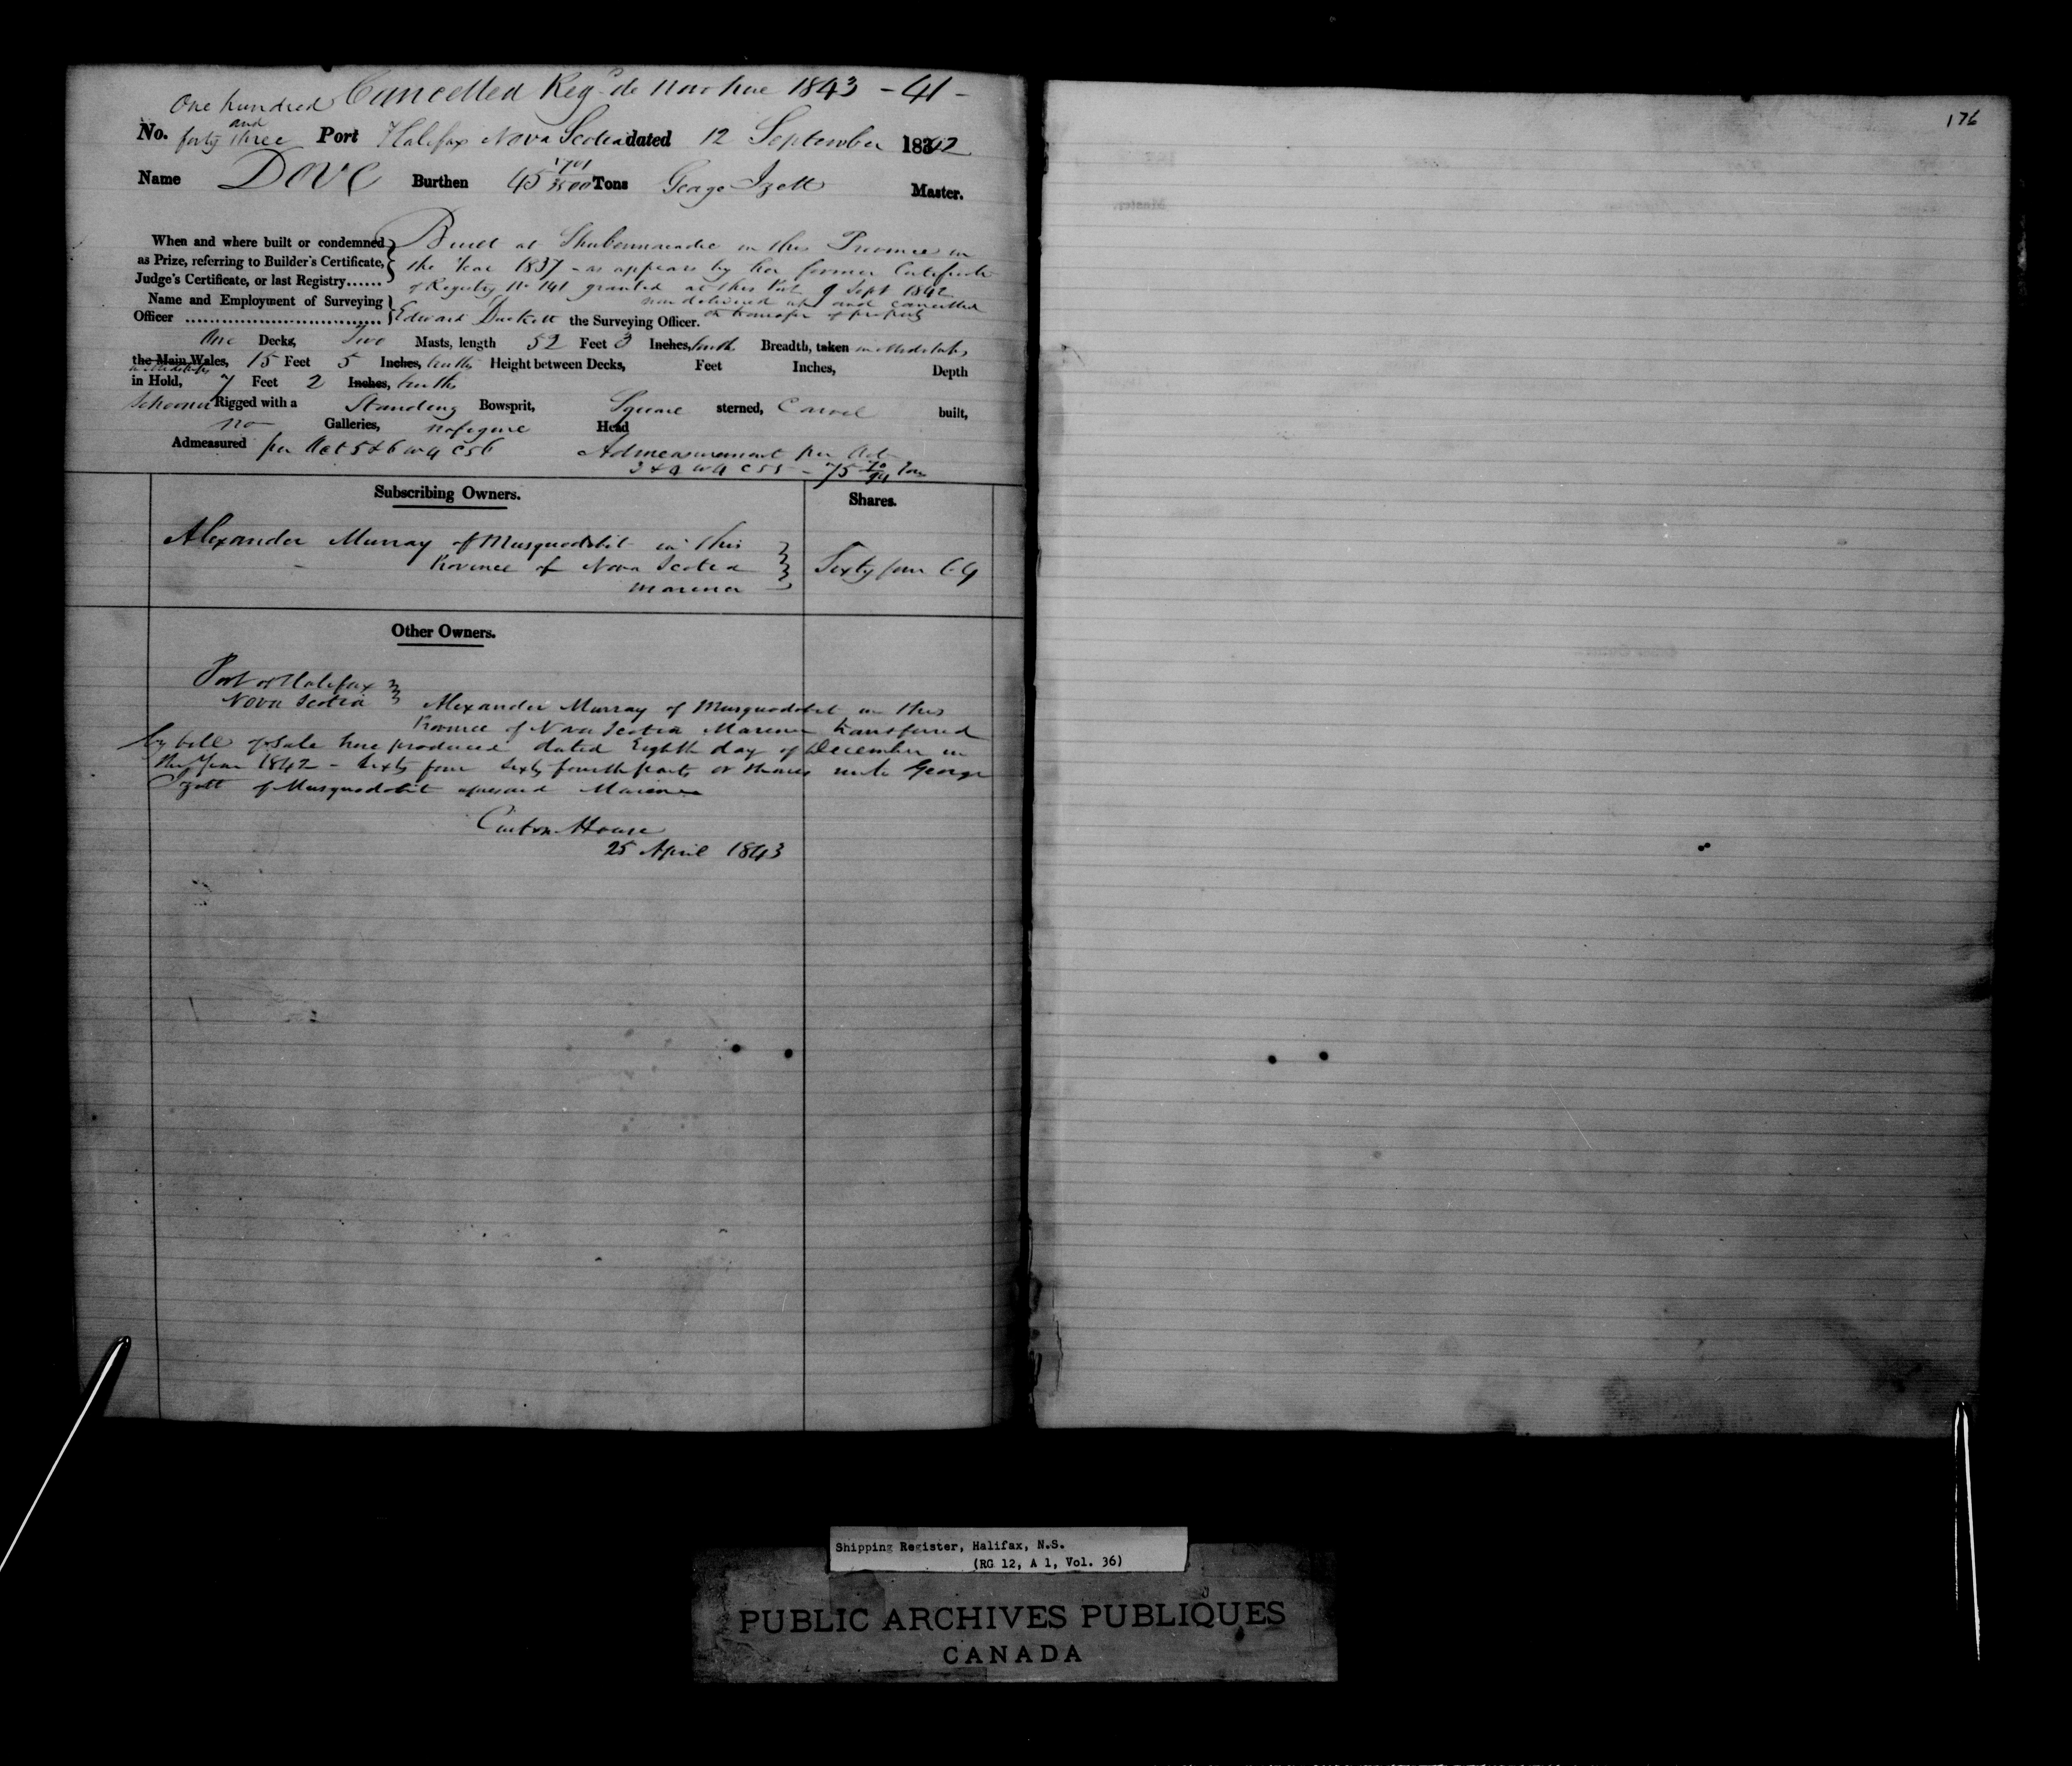 Cancelled Reg. de Novo hue 1843 - 41 -
One hundred and
No. forty three Port Halifax Nova Scotia dated 12 September 1842
Name Dove Burthen 45 1701/3500 Tons George Izott Master.
When and where built or condemned Built at Shubennacadie in this Province in
as Prize, referring to Builder's Certificate, the Year 1837 - as appears by her former Certificate
Judge's Certificate, or last Registry...... of Registry No 141 granted at this Port 9 Sept 1842
now delivered up and cancelled
Name and Employment of Surveying
Officer .............................. Edward Duckett the Surveying Officer. on transfer of property
One Decks, Two Masts, length 52 Feet 3 Inches, tenths Breadth, taken in Midships
the Main Wales, 15 Feet 5 Inches, tenths Height between Decks, Feet Inches, Depth
in Midships
in Hold, 7 Feet 2 Inches, tenths
Schooner Rigged with a Standing Bowsprit, Square sterned, Carvel built,
no Galleries, no figure Head
Admeasured per Act 5 & 6 W 4 C 56 Admeasurement per Act
3 & 4 W 4 C 55 - 75 Tons
Subscribing Owners. Shares.
Alexander Murray of Musquodobit in this
Province of Nova Scotia Sixty four 64
Mariner
Other Owners.
Port of Halifax
Nova Scotia Alexander Murray of Musquodobit in this
Province of Nova Scotia Mariner transferred
by bill of Sale here produced dated Eighth day of December in
the Year 1842 - Sixty four Sixty fourth parts or shares unto George
Izott of Musquodobit aforesaid Mariner
Custom House
25 April 1843
176
Shipping Register, Halifax, N.S.
(RG 12, A 1, Vol. 36)
PUBLIC ARCHIVES PUBLIQUES
CANADA